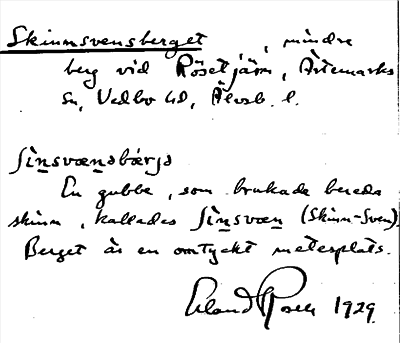 Skinnsvensberget, mindre
berg vid Rösetjärn, Ärtemarks
sn, Vedbo hd, Älvsb. l.
ʃìnsvænsbárjə
En gubbe, som brukade bereda
skinn, kallades ʃìnsvæn (Skinn-Sven).
Berget är en omtyckt metesplats.
Erland Rosell 1929.